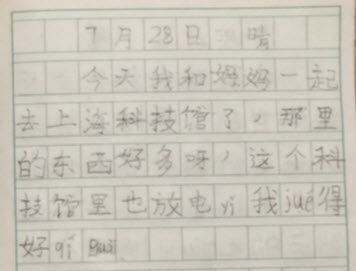 7月28日 晴
今天我和妈妈一起
去上海科技馆了，那里
的东西好多呀，这个科
技馆里也放电yi我jué得
好qi